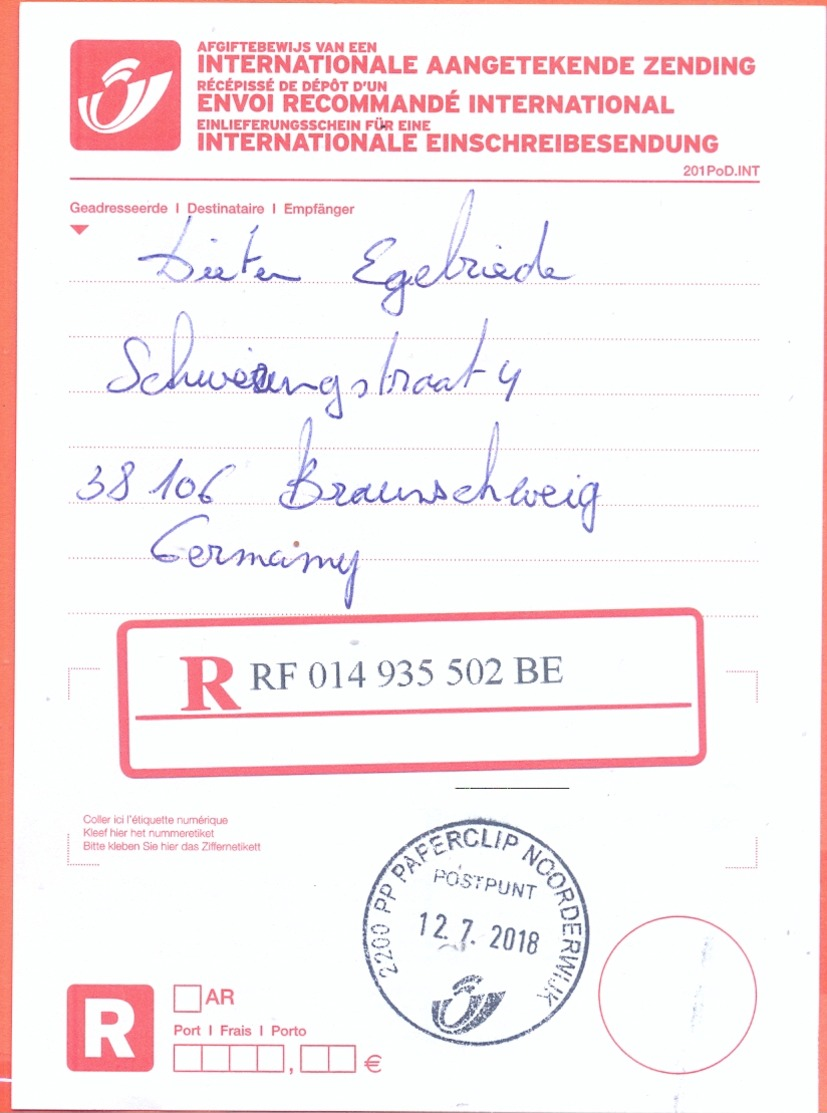 AFGIFTEBEWIJS VAN EEN
INTERNATIONALE AANGETEKENDE ZENDING
RÉCÉPISSÉ DE DÉPÔT D'UN
ENVOI RECOMMANDÉ INTERNATIONAL
EINLIEFERUNGSSCHEIN FÜR EINE
INTERNATIONALE EINSCHREIBESENDUNG
201PoD.INT
Geadresseerde I Destinataire I Empfänger
Dieter Egebriede
38 106 Braunschweig
Germany
R RF 014 935 502 BE
Coller ici l'étiquette numérique
Kleef hier het nummeretiket
Bitte kleben Sie hier das Ziffernetikett
2200 PP PAPERCLIP NOORDERWIJK
POSTPUNT
12. 7. 2018
R
AR
Port I Frais I Porto
, €